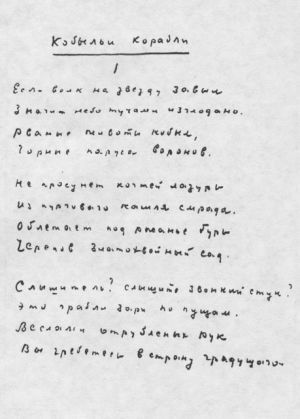 Кобыльи корабли
1
Если волк на звезду завыл
Значит небо тучами изглодано.
Рваные животы кобыл,
Чорные паруса воронов.
Не просунет когтей лазурь
Из пургового кашля смрада.
Облетает под ржанье бурь
Черепов златохвойный сад.
Слышите ль? слышите звонкий стук?
Это грабли зари по пущам.
Веслами отрубленых рук
Вы гребетесь в страну грядущаго